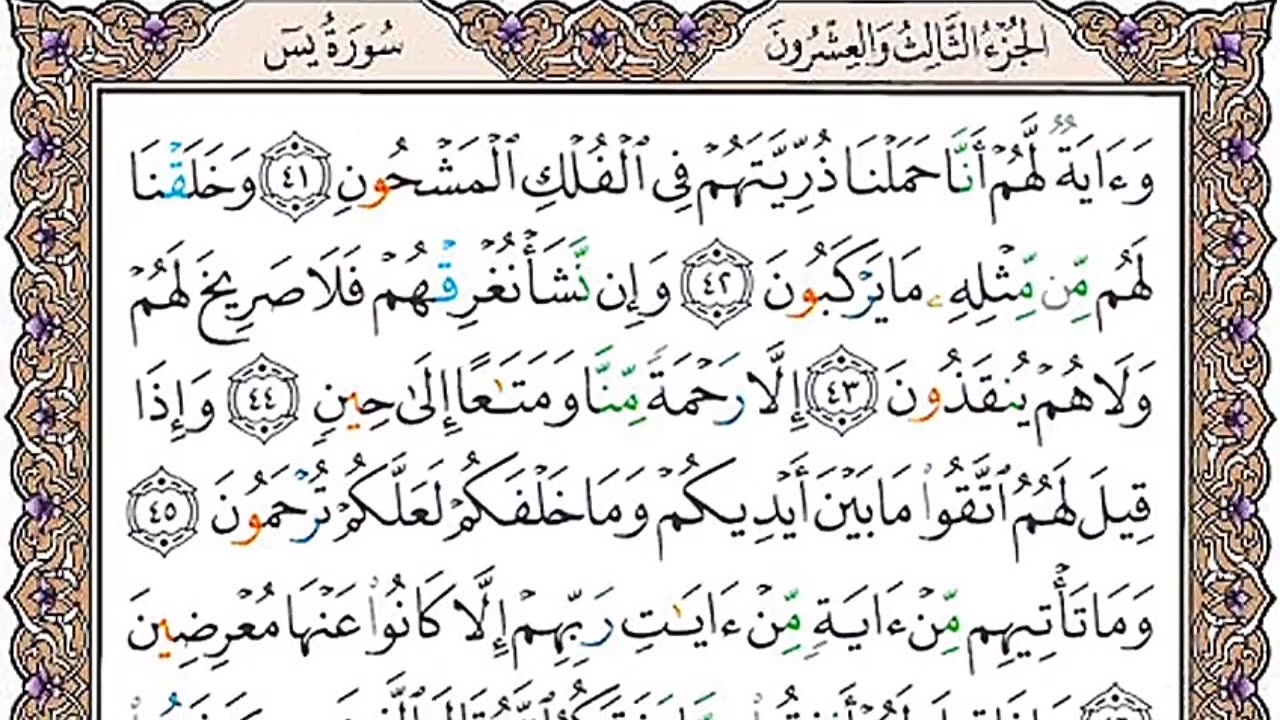 الجُزْءُ الثَّالِثُ وَالْعِشْرُونَ
سُورَةُ يسٓ
وَءَايَةٌ لَّهُمْ أَنَّا حَمَلْنَا ذُرِّيَّتَهُمْ فِى ٱلْفُلْكِ ٱلْمَشْحُونِ ٤١ وَخَلَقْنَا
لَهُم مِّن مِّثْلِهِۦ مَا يَرْكَبُونَ ٤٢ وَإِن نَّشَأْ نُغْرِقْهُمْ فَلَا صَرِيخَ لَهُمْ
وَلَا هُمْ يُنقَذُونَ ٤٣ إِلَّا رَحْمَةً مِّنَّا وَمَتَٰعًا إِلَىٰ حِينٍ ٤٤ وَإِذَا
قِيلَ لَهُمُ ٱتَّقُوا۟ مَا بَيْنَ أَيْدِيكُمْ وَمَا خَلْفَكُمْ لَعَلَّكُمْ تُرْحَمُونَ ٤٥
وَمَا تَأْتِيهِم مِّنْ ءَايَةٍ مِّنْ ءَايَٰتِ رَبِّهِمْ إِلَّا كَانُوا۟ عَنْهَا مُعْرِضِينَ